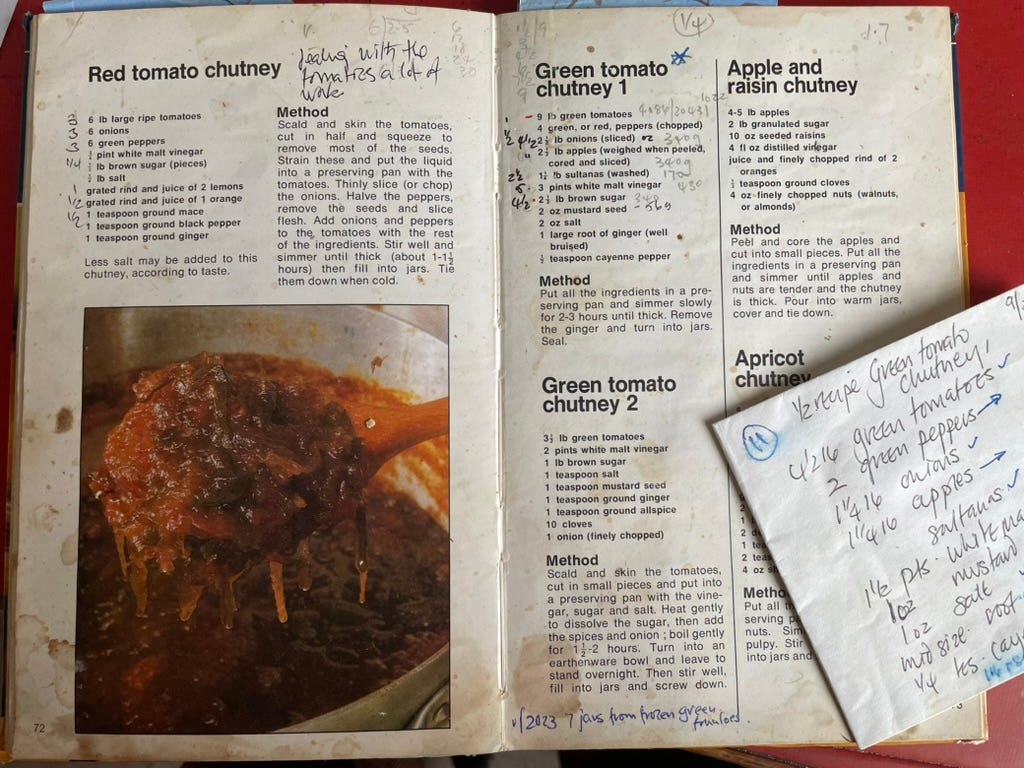 Red tomato chutney
dealing with the
tomatoes a lot of
work
3 6 lb large ripe tomatoes
3 6 onions
3 6 green peppers
½ pint white malt vinegar
1/4 ½ lb brown sugar (pieces)
½ lb salt
1 grated rind and juice of 2 lemons
½ grated rind and juice of 1 orange
1/2 1 teaspoon ground mace
1 teaspoon ground black pepper
1 teaspoon ground ginger
Less salt may be added to this
chutney, according to taste.
Method
Scald and skin the tomatoes,
cut in half and squeeze to
remove most of the seeds.
Strain these and put the liquid
into a preserving pan with the
tomatoes. Thinly slice (or chop)
the onions. Halve the peppers,
remove the seeds and slice
flesh. Add onions and peppers
to the tomatoes with the rest
of the ingredients. Stir well and
simmer until thick (about 1-1½
hours) then fill into jars. Tie
them down when cold.
72
1/4
Green tomato
chutney 1
9 lb green tomatoes
4 green, or red, peppers (chopped)
2½ lb onions (sliced) oz 340g
2½ lb apples (weighed when peeled,
cored and sliced) 340g
1¼ lb sultanas (washed) 170
3 pints white malt vinegar 430
2¼ lb brown sugar 340
2 oz mustard seed - 56g
2 oz salt
1 large root of ginger (well
bruised)
½ teaspoon cayenne pepper
Method
Put all the ingredients in a pre-
serving pan and simmer slowly
for 2-3 hours until thick. Remove
the ginger and turn into jars.
Seal.
Green tomato
chutney 2
3½ lb green tomatoes
2 pints white malt vinegar
1 lb brown sugar
1 teaspoon salt
1 teaspoon mustard seed
1 teaspoon ground ginger
1 teaspoon ground allspice
10 cloves
1 onion (finely chopped)
Method
Scald and skin the tomatoes,
cut in small pieces and put into
a preserving pan with the vine-
gar, sugar and salt. Heat gently
to dissolve the sugar, then add
the spices and onion ; boil gently
for 1½-2 hours. Turn into an
earthenware bowl and leave to
stand overnight. Then stir well,
fill into jars and screw down.
2023 7 jars from frozen green
tomatoes.
1.7
Apple and
raisin chutney
4-5 lb apples
2 lb granulated sugar
10 oz seeded raisins
4 fl oz distilled vinegar
juice and finely chopped rind of 2
oranges
½ teaspoon ground cloves
4 oz finely chopped nuts (walnuts,
or almonds)
Method
Peel and core the apples and
cut into small pieces. Put all the
ingredients in a preserving pan
and simmer until apples and
nuts are tender and the chutney
is thick. Pour into warm jars,
cover and tie down.
Apricot
chutney
Put all th
serving pa
nuts. Sim
pulpy. Stir
into jars and
½ recipe Green tomato
chutney,
11
4½ lb green tomatoes
2 green peppers
1¼ lb onions
1¼ lb apples
sultanas
1½ pts. white ma
1oz mustard
1oz salt
mid size root
1/4 ts. cay